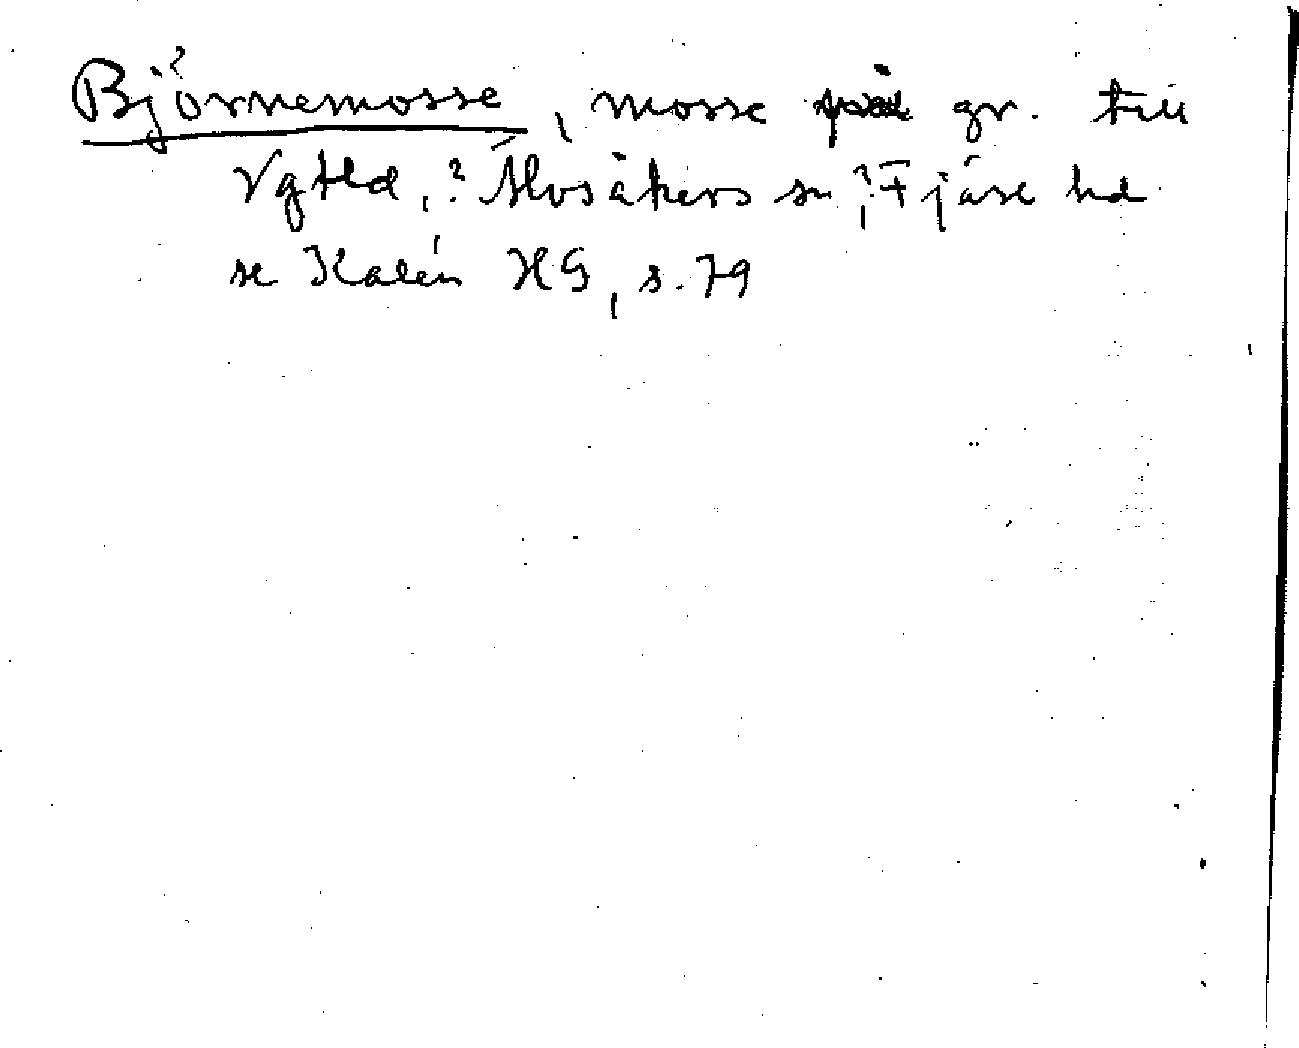 Björnemosse, mosse på gr. till
Vgtld, ? Älvsåkers sn, ? Fjäre hd
se Kalén HG, s. 79